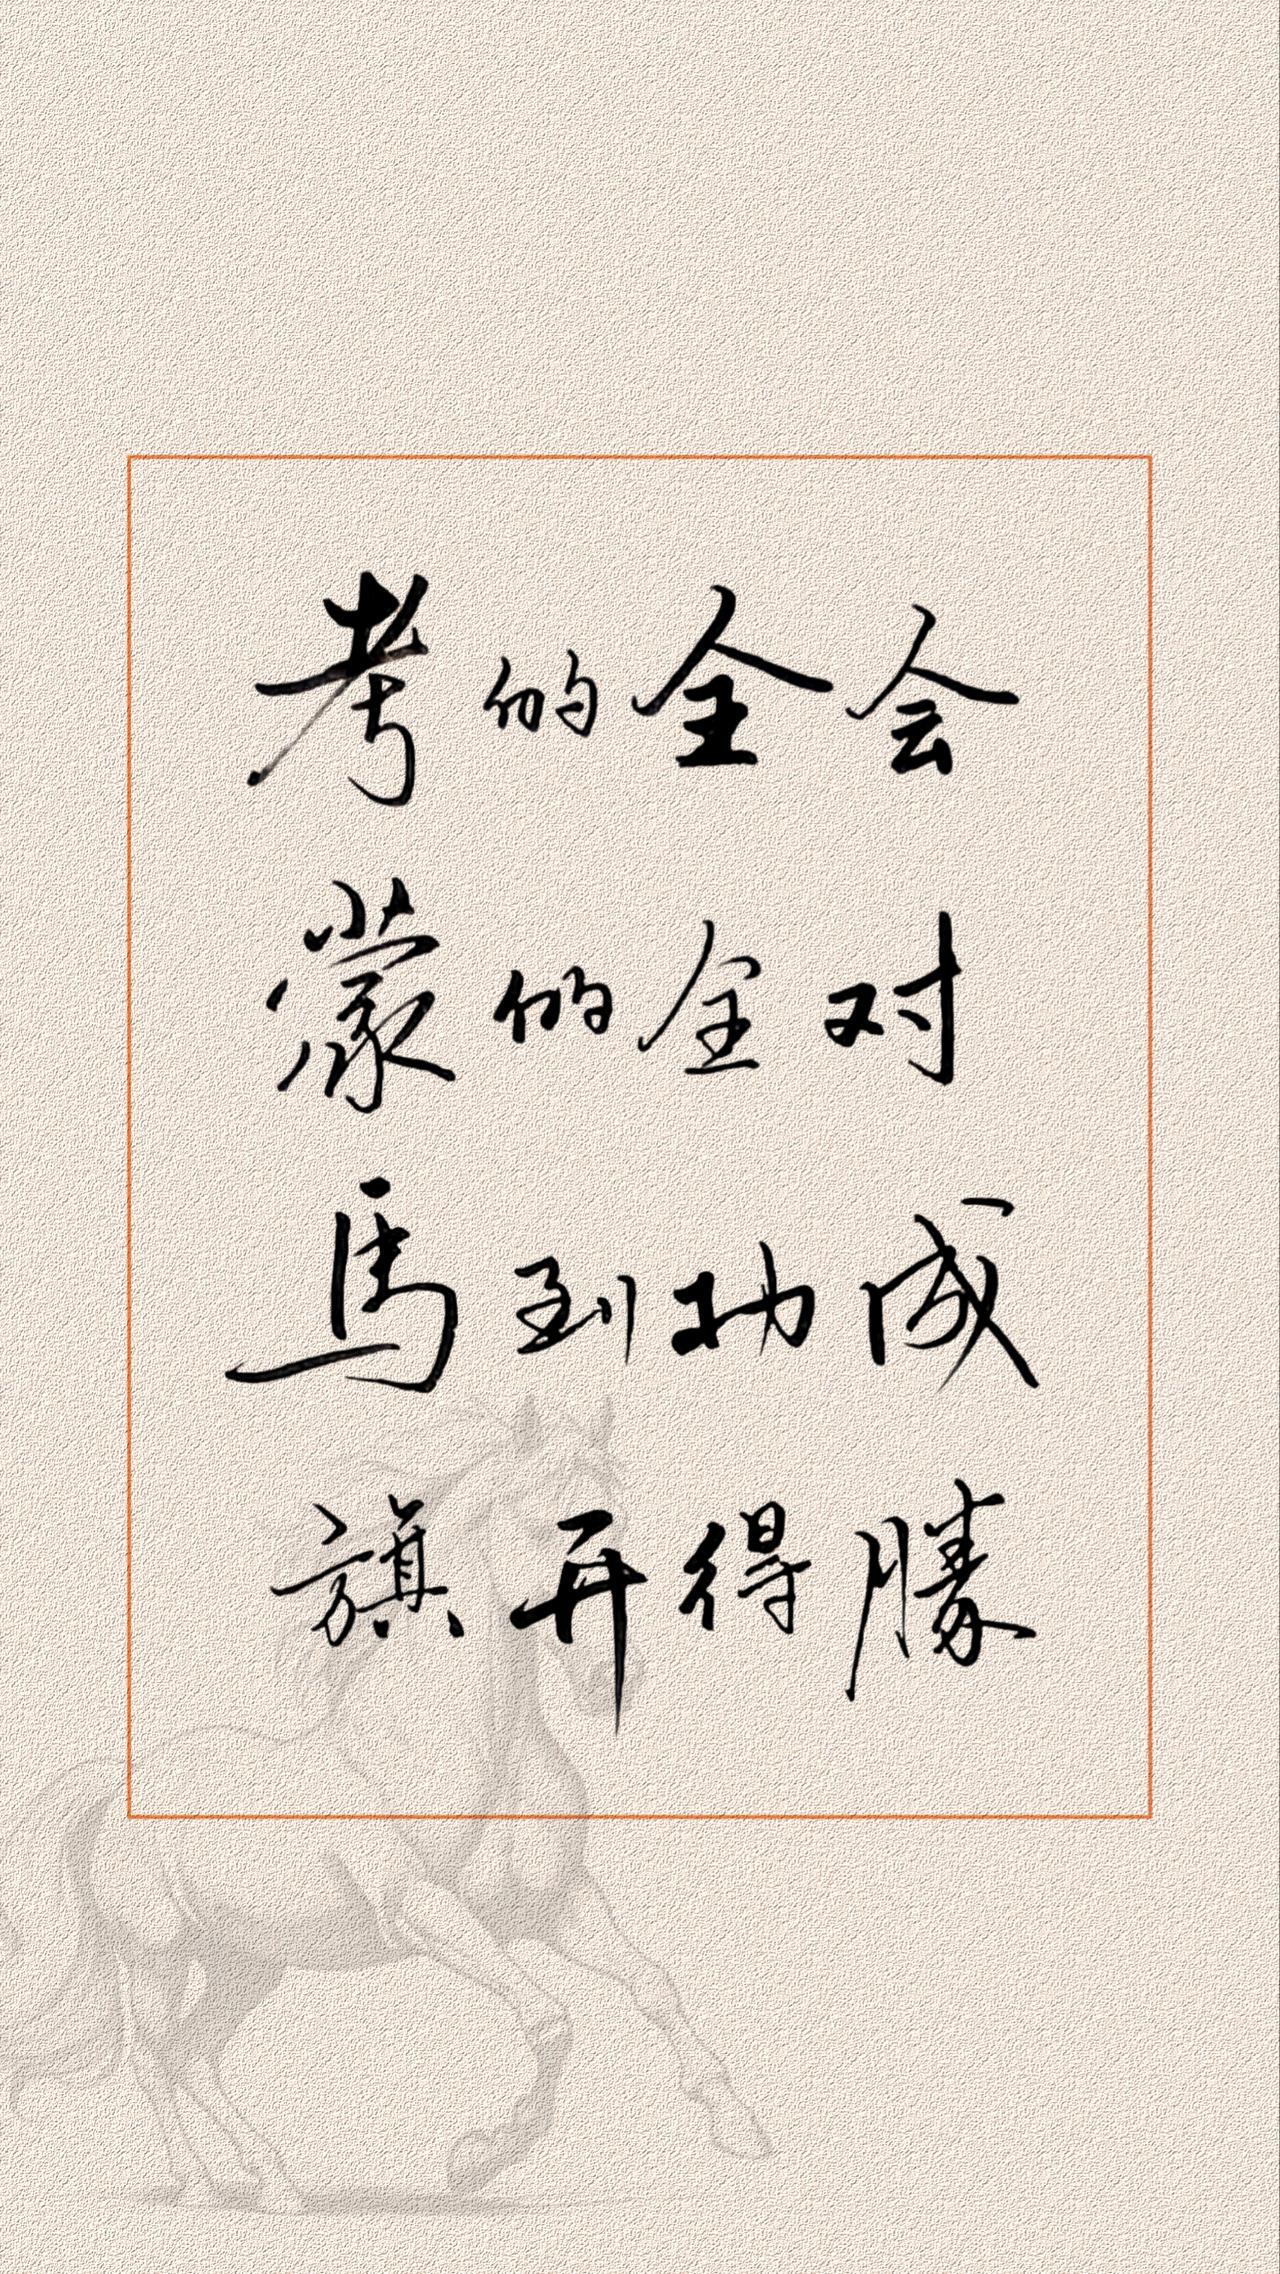 考的全会
蒙的全对
馬到功成
旗开得勝